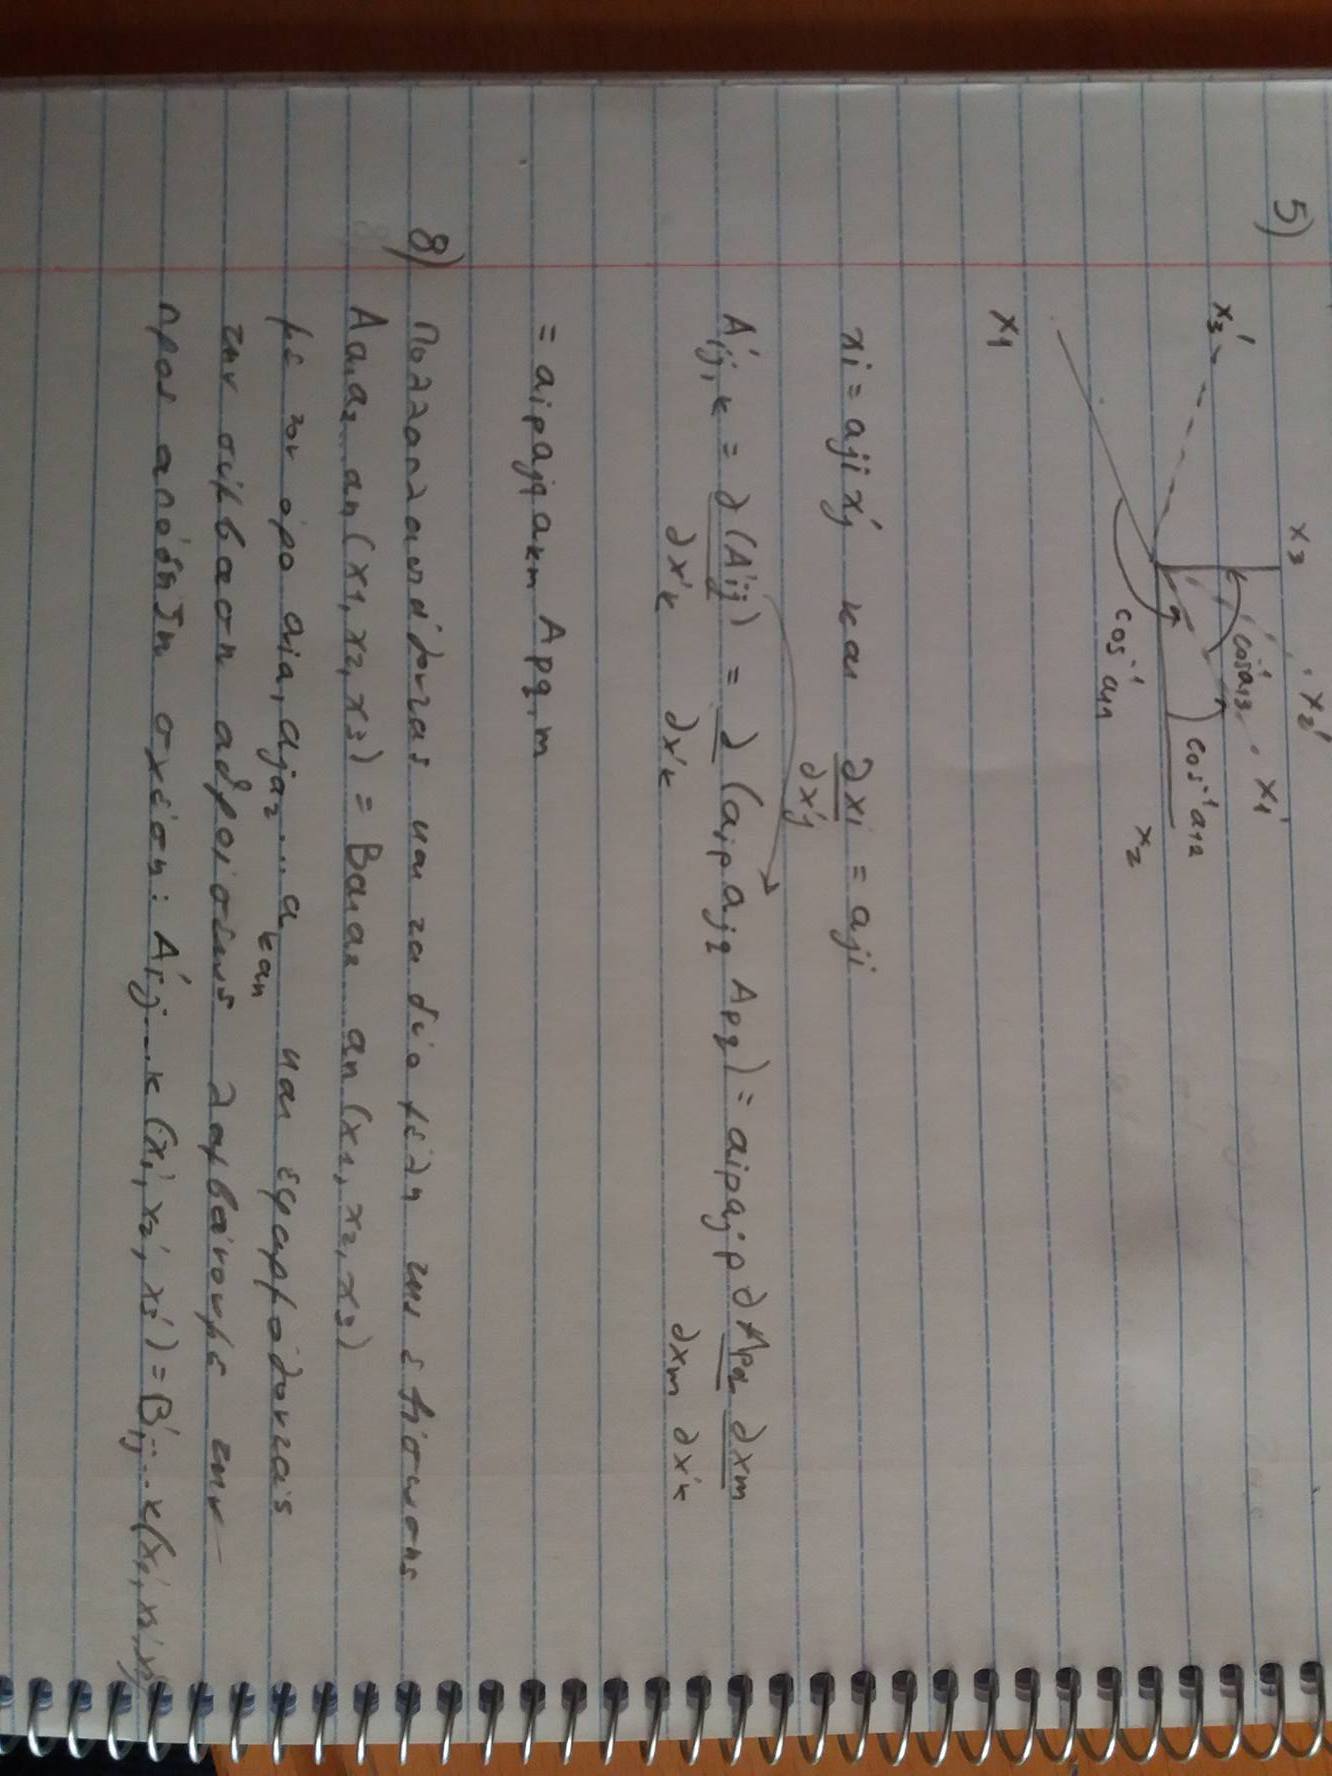 5)
x3
x2'
x1'
x3'
cos⁻¹a13
cos⁻¹a12
x2
cos⁻¹a11
x1
xi = aji x'j και ∂xi/∂x'j = aji
A'ij,k = ∂(A'ij)/∂x'k = ∂/∂x'k (aip ajq Apq) = aipajp ∂Apq/∂xm ∂xm/∂x'k
= aipajqakm Apq,m
8) Πολλαπλασιάζοντας και τα δύο μέλη της εξίσωσης
Aa1a2...an(x1,x2,x3) = Ba1a2 an(x1,x2,x3)
με τον όρο aia1aja2...akan και εφαρμόζοντας
την σύμβαση αθροίσεως λαμβάνουμε την
προς απόδειξη σχέση: A'ij...k(x1',x2',x3') = B'ij...k(x1',x2',x3')